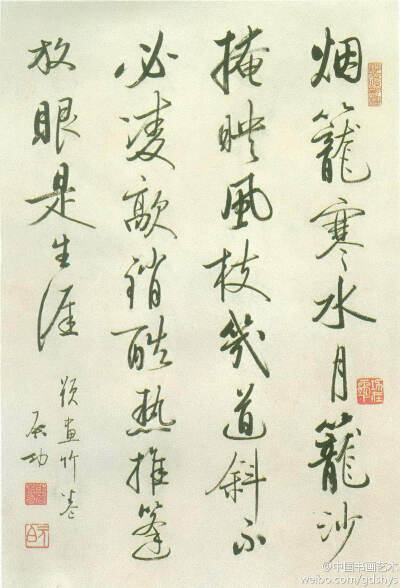 烟籠寒水月籠沙
掩映風枝幾道斜不
必凌歊銷酷熱推篷
放眼是生涯
題畫竹卷
启功
@中国书画艺术
weibo.com/gdshys